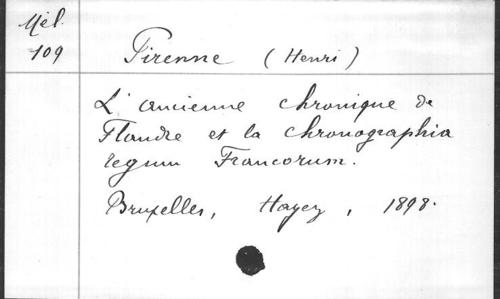 Mél.
109
Pirenne (Henri)
L'ancienne chronique de
Flandre et la chronographia
regum Francorum.
Bruxelles, Hayez, 1898.